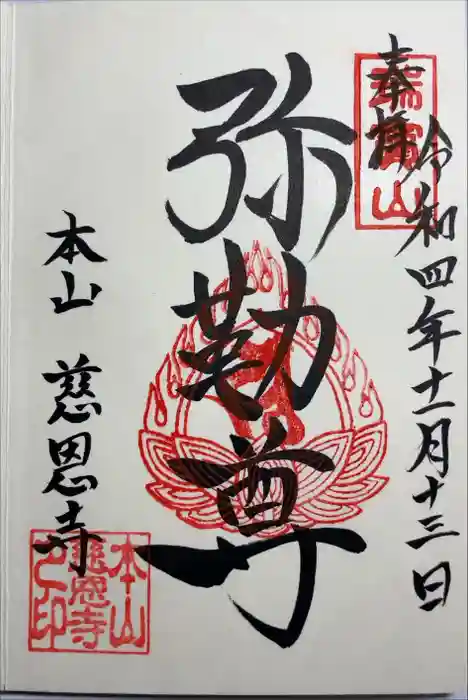 奉拝
令和四年十一月十三日
瑞宝山
弥勒尊
本山 慈恩寺
本山慈恩寺之印